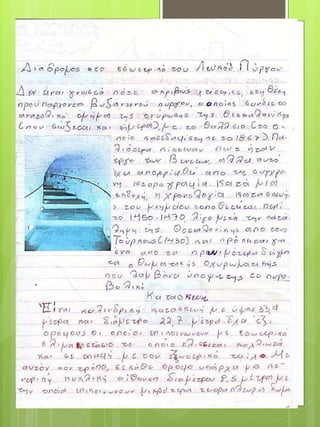 Διαδρομος στο εσωτερικό του Λευκού Πύργου
Δεν είναι γνωστό πότε ακριβώς χτίστηκε, στη θέση
προϋπάρχοντα βυζαντινού πύργου, ο οποίος συνδεε το
ανατολικό τμήμα της οχυρωσης της Θεσσαλονίκης
(που σώζεται και σήμερα) με το θαλάσσιο (το ο-
ποίο κατεδαφίστηκε το 1867). Πα-
λιότερα πίστευαν πως ήταν
έργο των Βενετων, αλλα αυτό
έχει απορριφθεί απο τη συγχρο-
νη ιστοριογραφία. Κατά μια
εκδοχή, η χρονολογία κατασκευή
ς του μνημείου τοποθετείται περί
το 1450-1470 λίγο μετά την κατά
ληψη της Θεσσαλονίκης απο τους
Τούρκους (1430) και πρόκειται για
ένα απο τα πρωιμοτερα δείγμα
τα οθωμανικής οχυρωματικής
που λαμβάνει υπόψη της το πυρο-
βολικό
Κατασκευη
Είναι κυλινδρική κατασκευή με ύψος 33,9
μετρα και διάμετρο 22,7 μέτρα. Έχει έξι
ορόφους οι οποίοι επικοινωνούν με εσωτερικό
κλιμακοστάσιο το οποίο ελίσσεται κοχλιωτά
και σε επαφή με τον εξωτερικό τοίχο. Με
αυτον τον τρόπο, σε κάθε όροφο υπάρχει μια κε-
ντρική κυκλική αίθουσα διαμέτρου 8,5 μέτρα με
την οποία επικοινωνουν μικρότερα τετραπλευρα δωμα